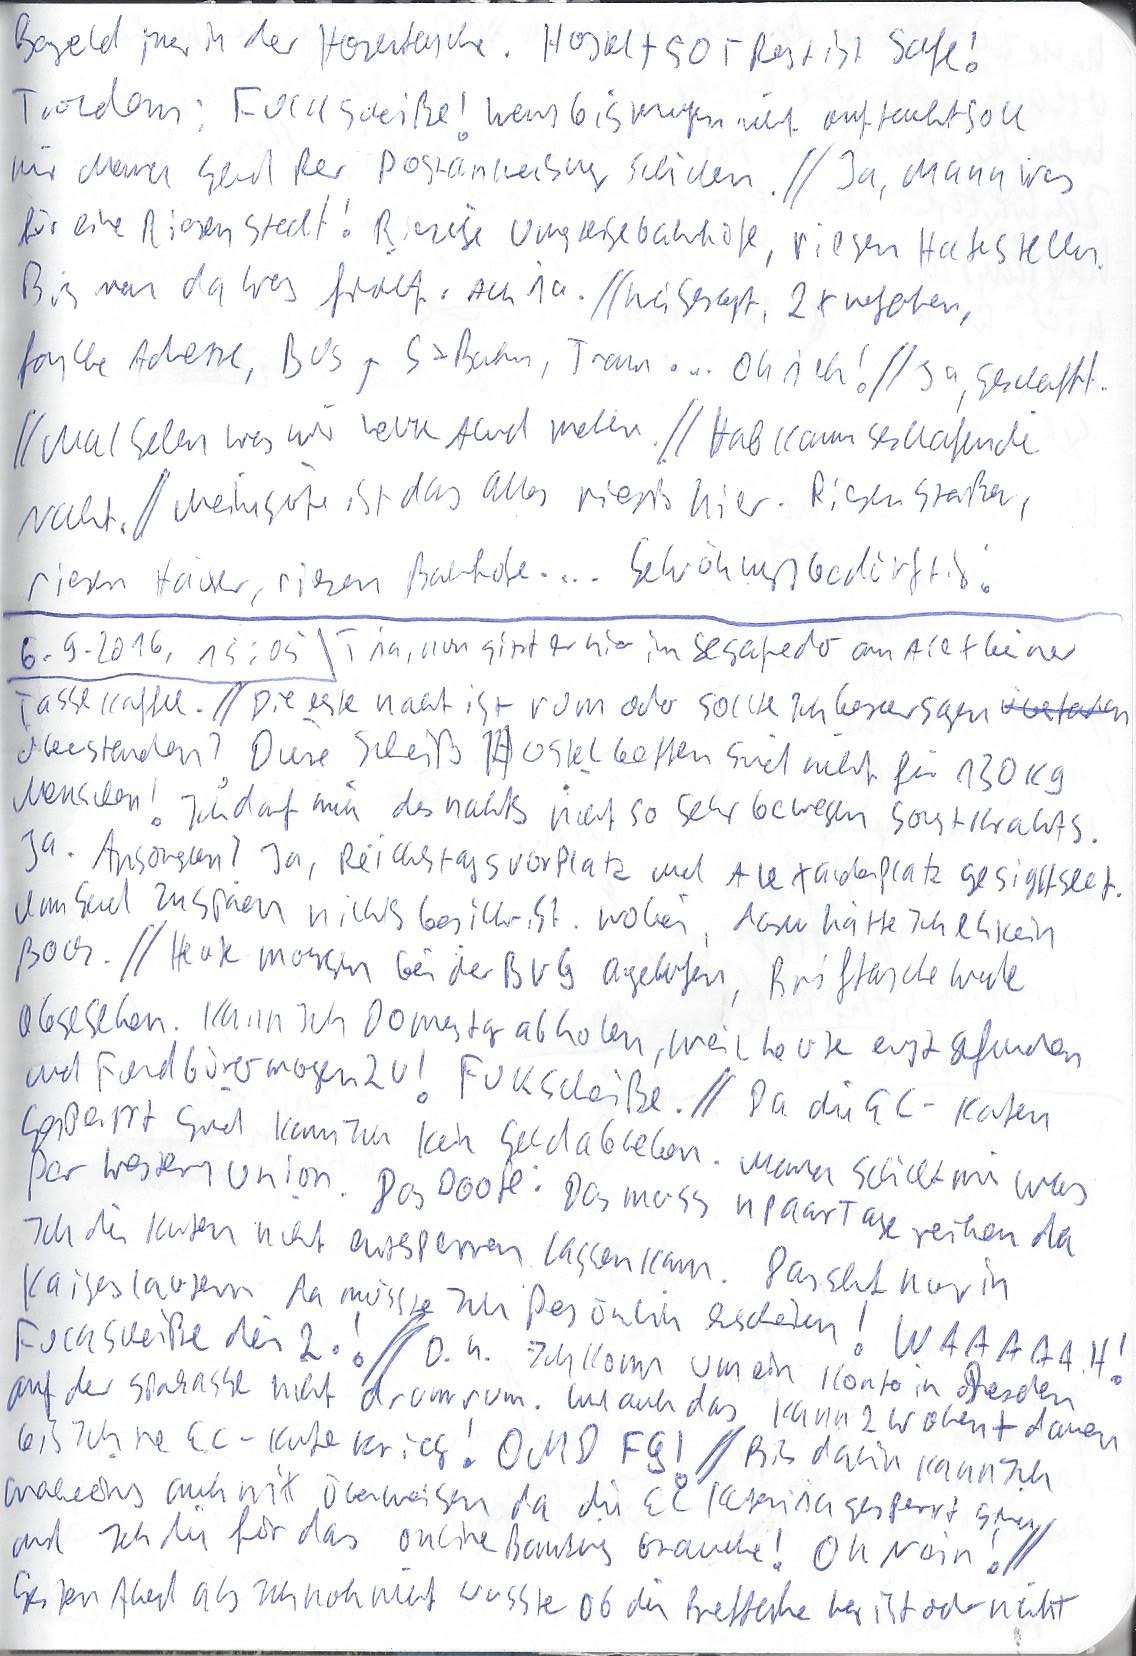 Bargeld immer in der Hosentasche. Hostel + SO Rest ist Safe!
Trotzdem: Fuckscheiße! Wenns bis morgen nicht auftaucht soll
mir Mama Geld Per Postanweisung schicken. // Ja, Mann was
für eine Riesenstadt! Riesige Umsteigebahnhöfe, riesen Haltestellen.
Bis man da was findet. Ach ja. // Wie gesagt, 2x verfahren,
falsche Adresse, Bus, S-Bahn, Tram ... Oh ich! // Ja, geschafft.
// Mal sehen was wir heute Abend machen. // Hab kaum geschlafen die
Nacht. // Meine Güte ist das alles riesig hier. Riesen Straßen,
riesen Häuser, riesen Bahnhöfe .... Gewöhnungsbedürftig!
6.9.2016, 15:05 Tja, nun sitzt er hier im Segafredo am Alex bei ner
Tasse Kaffee. // Die erste Nacht ist rum oder sollte ich besser sagen
überstanden? Diese Scheiß Hostelbetten sind nicht für 130 Kg
Menschen! Ich darf mich des nachts nicht so sehr bewegen sonst krachts.
Ja. Ansonsten? Ja, Reichstagsvorplatz und Alexanderplatz gesightseet.
Um Geld zu sparen nichts besichtigt. Wobei, dazu hätte ich eh kein
Bock. // Heute morgen bei der BVG angerufen, Brieftasche wurde
abgegeben. Kann ich Donnerstag abholen, weil heute erst gefunden
und Fundbüro morgen zu! Fuckscheiße. // Da die EC-Karten
gesperrt sind kann ich kein Geld abheben. Mama schickt mir was
Per Western Union. Das Doofe: Das muss n paar Tage reichen da
ich die Karten nicht entsperren lassen kann. Das geht nur in
Kaiserslautern da müsste ich Persönlich erscheinen! WAAAAAH!
Fuckscheiße die 2.! // D.h. ich komm um ein Konto in Dresden
auf der Sparkasse nicht drumrum. Und auch das kann 2 Wochen + dauern
bis ich ne EC-Karte krieg! OMDFG! // Bis dahin kann ich
auch nix überweisen da die EC Karten ja gesperrt sind
und ich die für das online Banking brauche! Oh Nein! //
Gestern Abend als ich noch nicht wusste ob die Brieftasche weg ist oder nicht